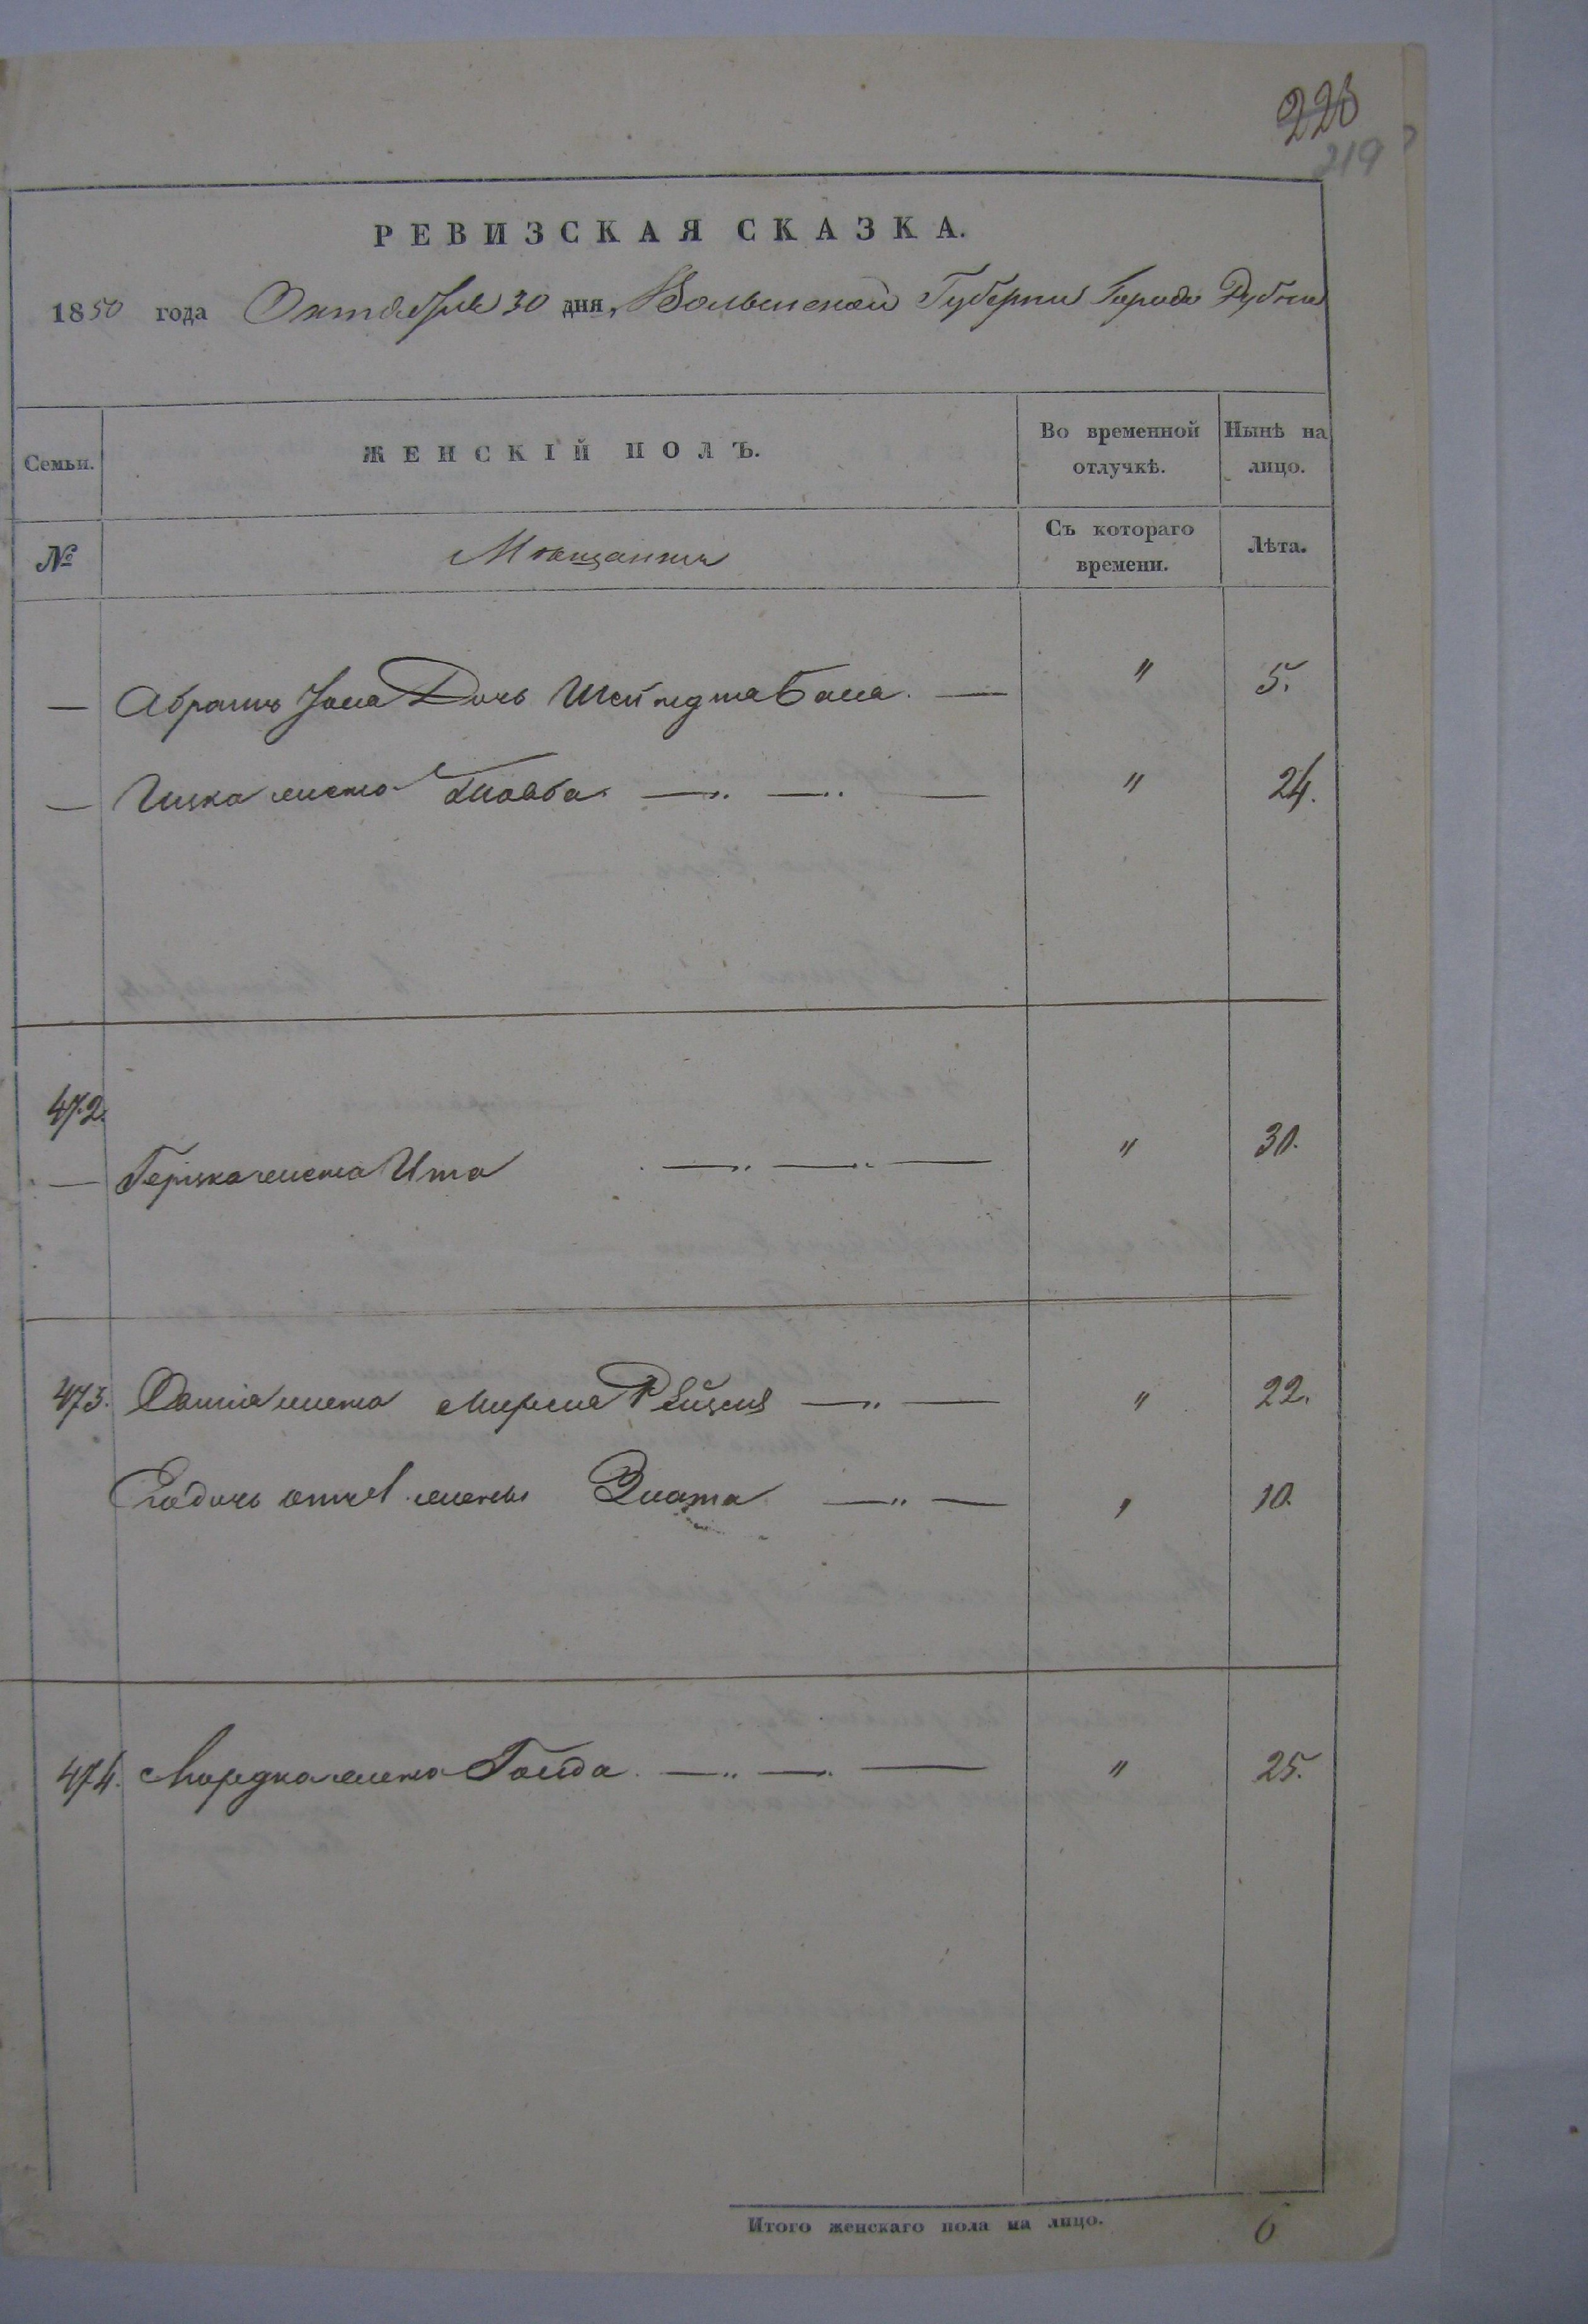 223
219
РЕВИЗСКАЯ СКАЗКА.
1850 года Октября 30 дня, Волынской Губернии Города Дубна
Семьи.
ЖЕНСКІЙ ПОЛЪ.
Во временной отлучкѣ.
Нынѣ на лицо.
№
Мѣщанки
Съ котораго времени.
Лѣта.
— Абрамъ Дочь — " 5.
— Ицка жена — " — " — " 24.
472.
— Гершка жена Ита — " — " — " 30.
473. жена — " — " 22.
Его дочь отъ 1 жены Злата — " — " 10.
474. Мордка жена Гольда — " — " — " 25.
Итого женскаго пола на лицо. 6